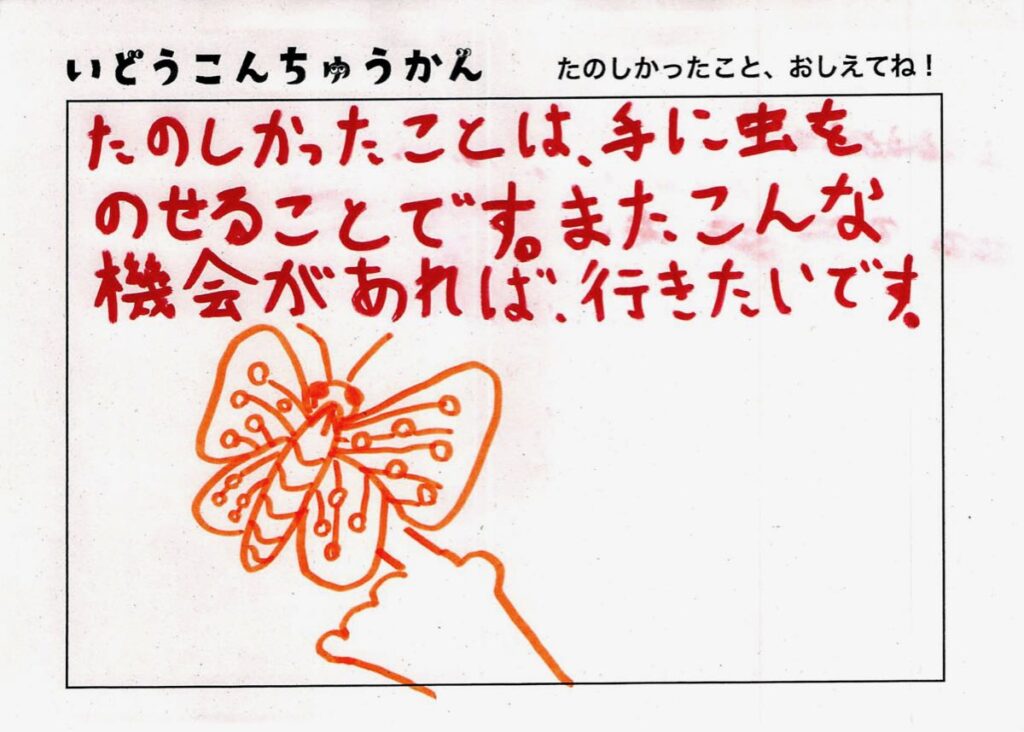 いどうこんちゅうかん
たのしかったこと、おしえてね！
たのしかったことは、手に虫を
のせることです。またこんな
機会があれば、行きたいです。